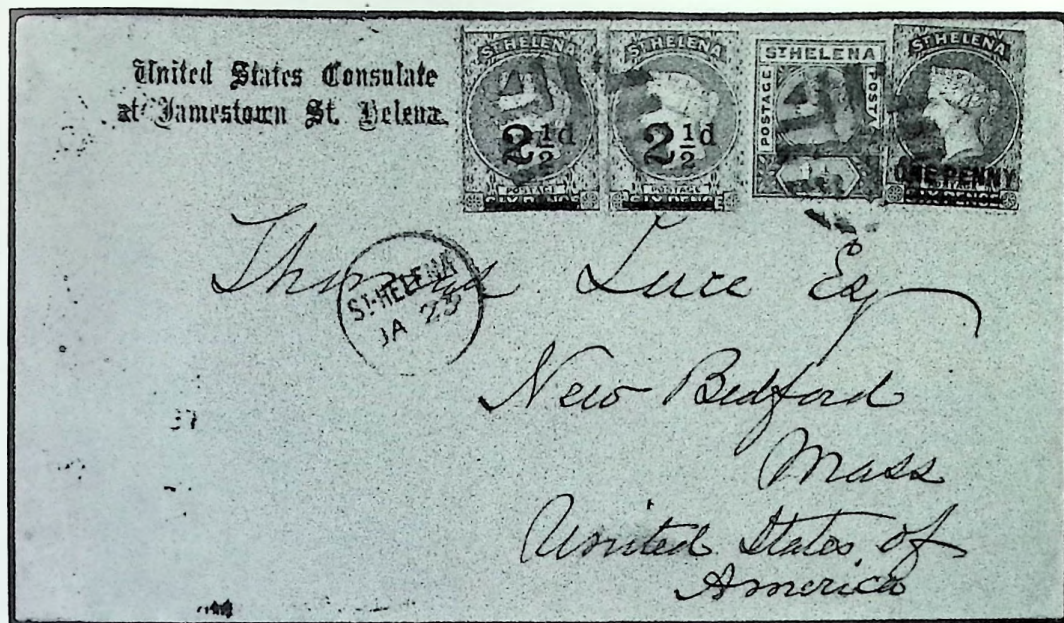 United States Consulate
at Jamestown St. Helena.
ST HELENA
2 1/2 d
POSTAGE
SIX PENCE
ST HELENA
2 1/2 d
POSTAGE
SIX PENCE
ST HELENA
POSTAGE
POSTA
ST HELENA
ONE PENNY
SIX PENCE
Thomas Luce Esq
ST. HELENA
JA 23
New Bedford
Mass
United States of
America